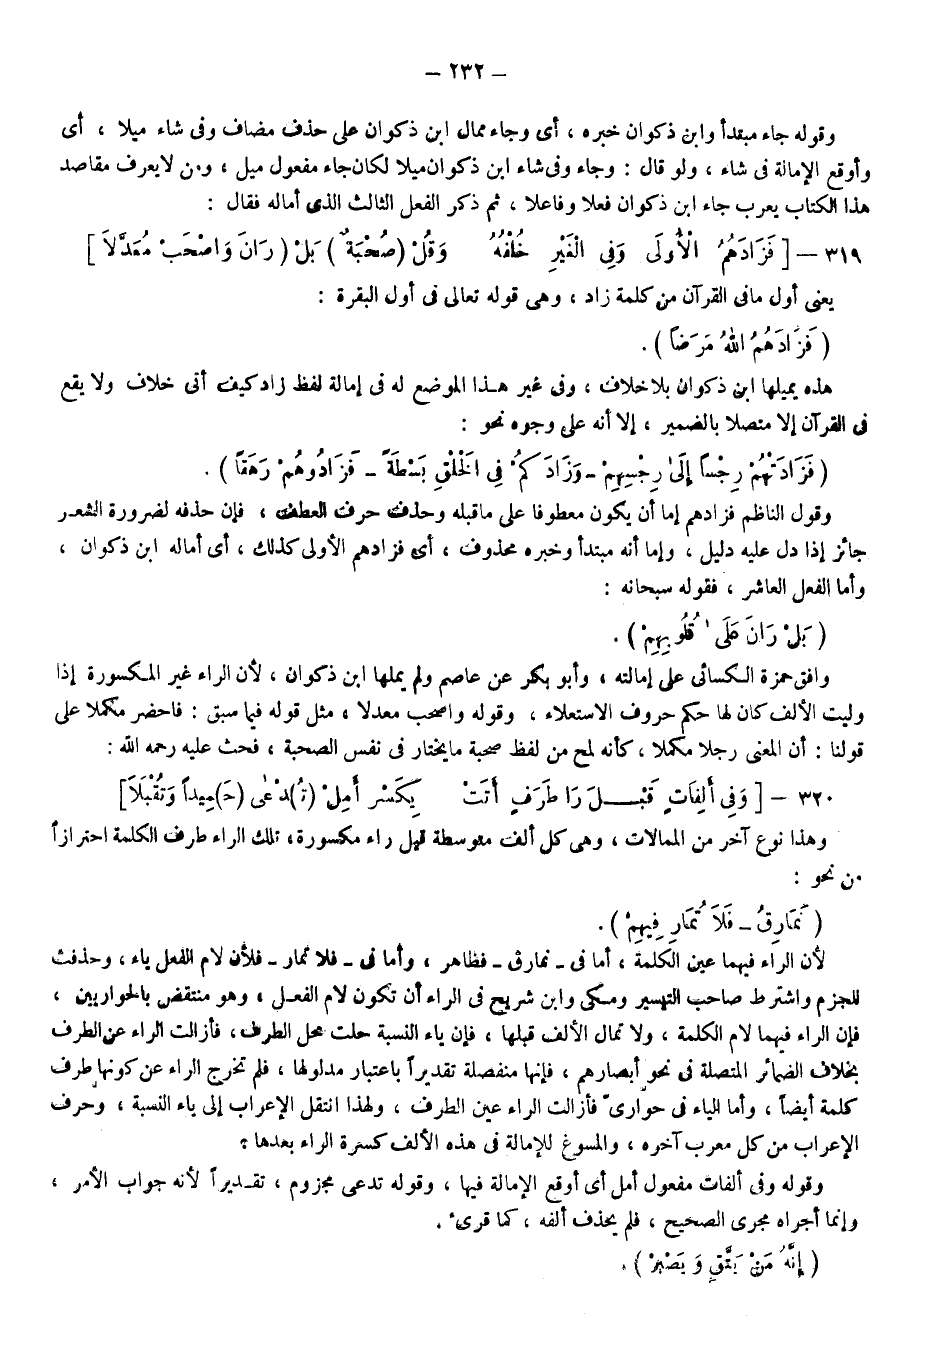 – ٢٣٢ –
وقوله جاء مبتدأ وابن ذكوان خبره ، أى وجاء ممال ابن ذكوان على حذف مضاف وفى شاء ميلا ، أى
وأوقع الإمالة فى شاء ، ولو قال : وجاء وفى شاء ابن ذكوان ميلا لكان جاء مفعول ميل ، ومن لايعرف مقاصد
هذا الكتاب يعرب جاء ابن ذكوان فعلا وفاعلا ، ثم ذكر الفعل الثالث الذى أماله فقال :
٣١٩ – [ فَزَادَهُمُ الْأُولَى وَفِى الْغَيْرِ خُلْفُهُ وَقُلْ (صُحْبَةٌ ) بَلْ ( رَانَ وَاصْحَبْ مُعَدَّلَا ]
يعنى أول مافى القرآن من كلمة زاد ، وهى قوله تعالى فى أول البقرة :
( فَزَادَهُمُ اللهُ مَرَضاً ) .
هذه يميلها ابن ذكوان بلاخلاف ، وفى غير هـذا الموضع له فى إمالة لفظ زاد كيف أتى خلاف ولا يقع
فى القرآن إلا متصلا بالضمير ، إلا أنه على وجوه نحو :
( فَزَادَتْهُمْ رِجْساً إِلَىٰ رِجْسِهِمْ – وَزَادَكُمْ فِى الْخَلْقِ بَسْطَةً – فَزَادُوهُمْ رَهَقاً ) .
وقول الناظم فزادهم إما أن يكون معطوفا على ماقبله وحذف حرف العطف ، فإن حذفه لضرورة الشعـر
جائز إذا دل عليه دليل ، وإما أنه مبتدأ وخبره محذوف ، أى فزادهم الأولى كذلك ، أى أماله ابن ذكوان ،
وأما الفعل العاشر ، فقوله سبحانه :
( بَلْ رَانَ عَلَىٰ قُلُوبِهِمْ ) .
وافق حمزة الكسائى على إمالته ، وأبو بكر عن عاصم ولم يملها ابن ذكوان ، لأن الراء غير المكسورة إذا
وليت الألف كان لها حكم حروف الاستعلاء ، وقوله واصحب معدلا ، مثل قوله فيما سبق : فاحضر مكملا على
قولنا : أن المعنى رجلا مكملا ، كأنه لمح من لفظ صحبة مايختار فى نفس الصحبة ، فحث عليه رحمه الله :
٣٢٠ – [ وَفِى أَلِفَاتٍ قَبْــلَ رَا طَرَفٍ أَتَتْ بِكَسْرٍ أَمِلْ (تُـ)ـدْعَى (حَـ)ـمِيداً وَتُقْبَلَا]
وهذا نوع آخر من الممالات ، وهى كل ألف متوسطة قبل راء مكسورة، تلك الراء طرف الكلمة احترازاً
من نحو :
( نَمَارِقُ – فَلَا تُمَارِ فِيهِمْ ) .
لأن الراء فيهما عين الكلمة ، أما فى – نمارق – فظاهر ، وأما فى – فلا تمار – فلأن لام الفعل ياء ، وحذفت
للجزم واشترط صاحب التيسير ومكى وابن شريح فى الراء أن تكون لام الفعـل ، وهو منتقض بالحواريين ،
فإن الراء فيهما لام الكلمة ، ولا تمال الألف قبلها ، فإن ياء النسبة حلت محل الطرف ، فأزالت الراء عن الطرف
بخلاف الضمائر المتصلة فى نحو أبصارهم ، فإنها منفصلة تقديراً باعتبار مدلولها ، فلم تخرج الراء عن كونها طرف
كلمة أيضاً ، وأما الياء فى حوارى فأزالت الراء عين الطرف ، ولهذا انتقل الإعراب إلى ياء النسبة ، وحرف
الإعراب من كل معرب آخره ، والمسوغ للإمالة فى هذه الألف كسرة الراء بعدها ؟
وقوله وفى ألفات مفعول أمل أى أوقع الإمالة فيها ، وقوله تدعى مجزوم ، تقـديراً لأنه جواب الأمر ،
وإنما أجراه مجرى الصحيح ، فلم يحذف ألفه ، كما قرئ .
( إِنَّهُ مَنْ يَتَّقِ وَيَصْبِرْ ) .